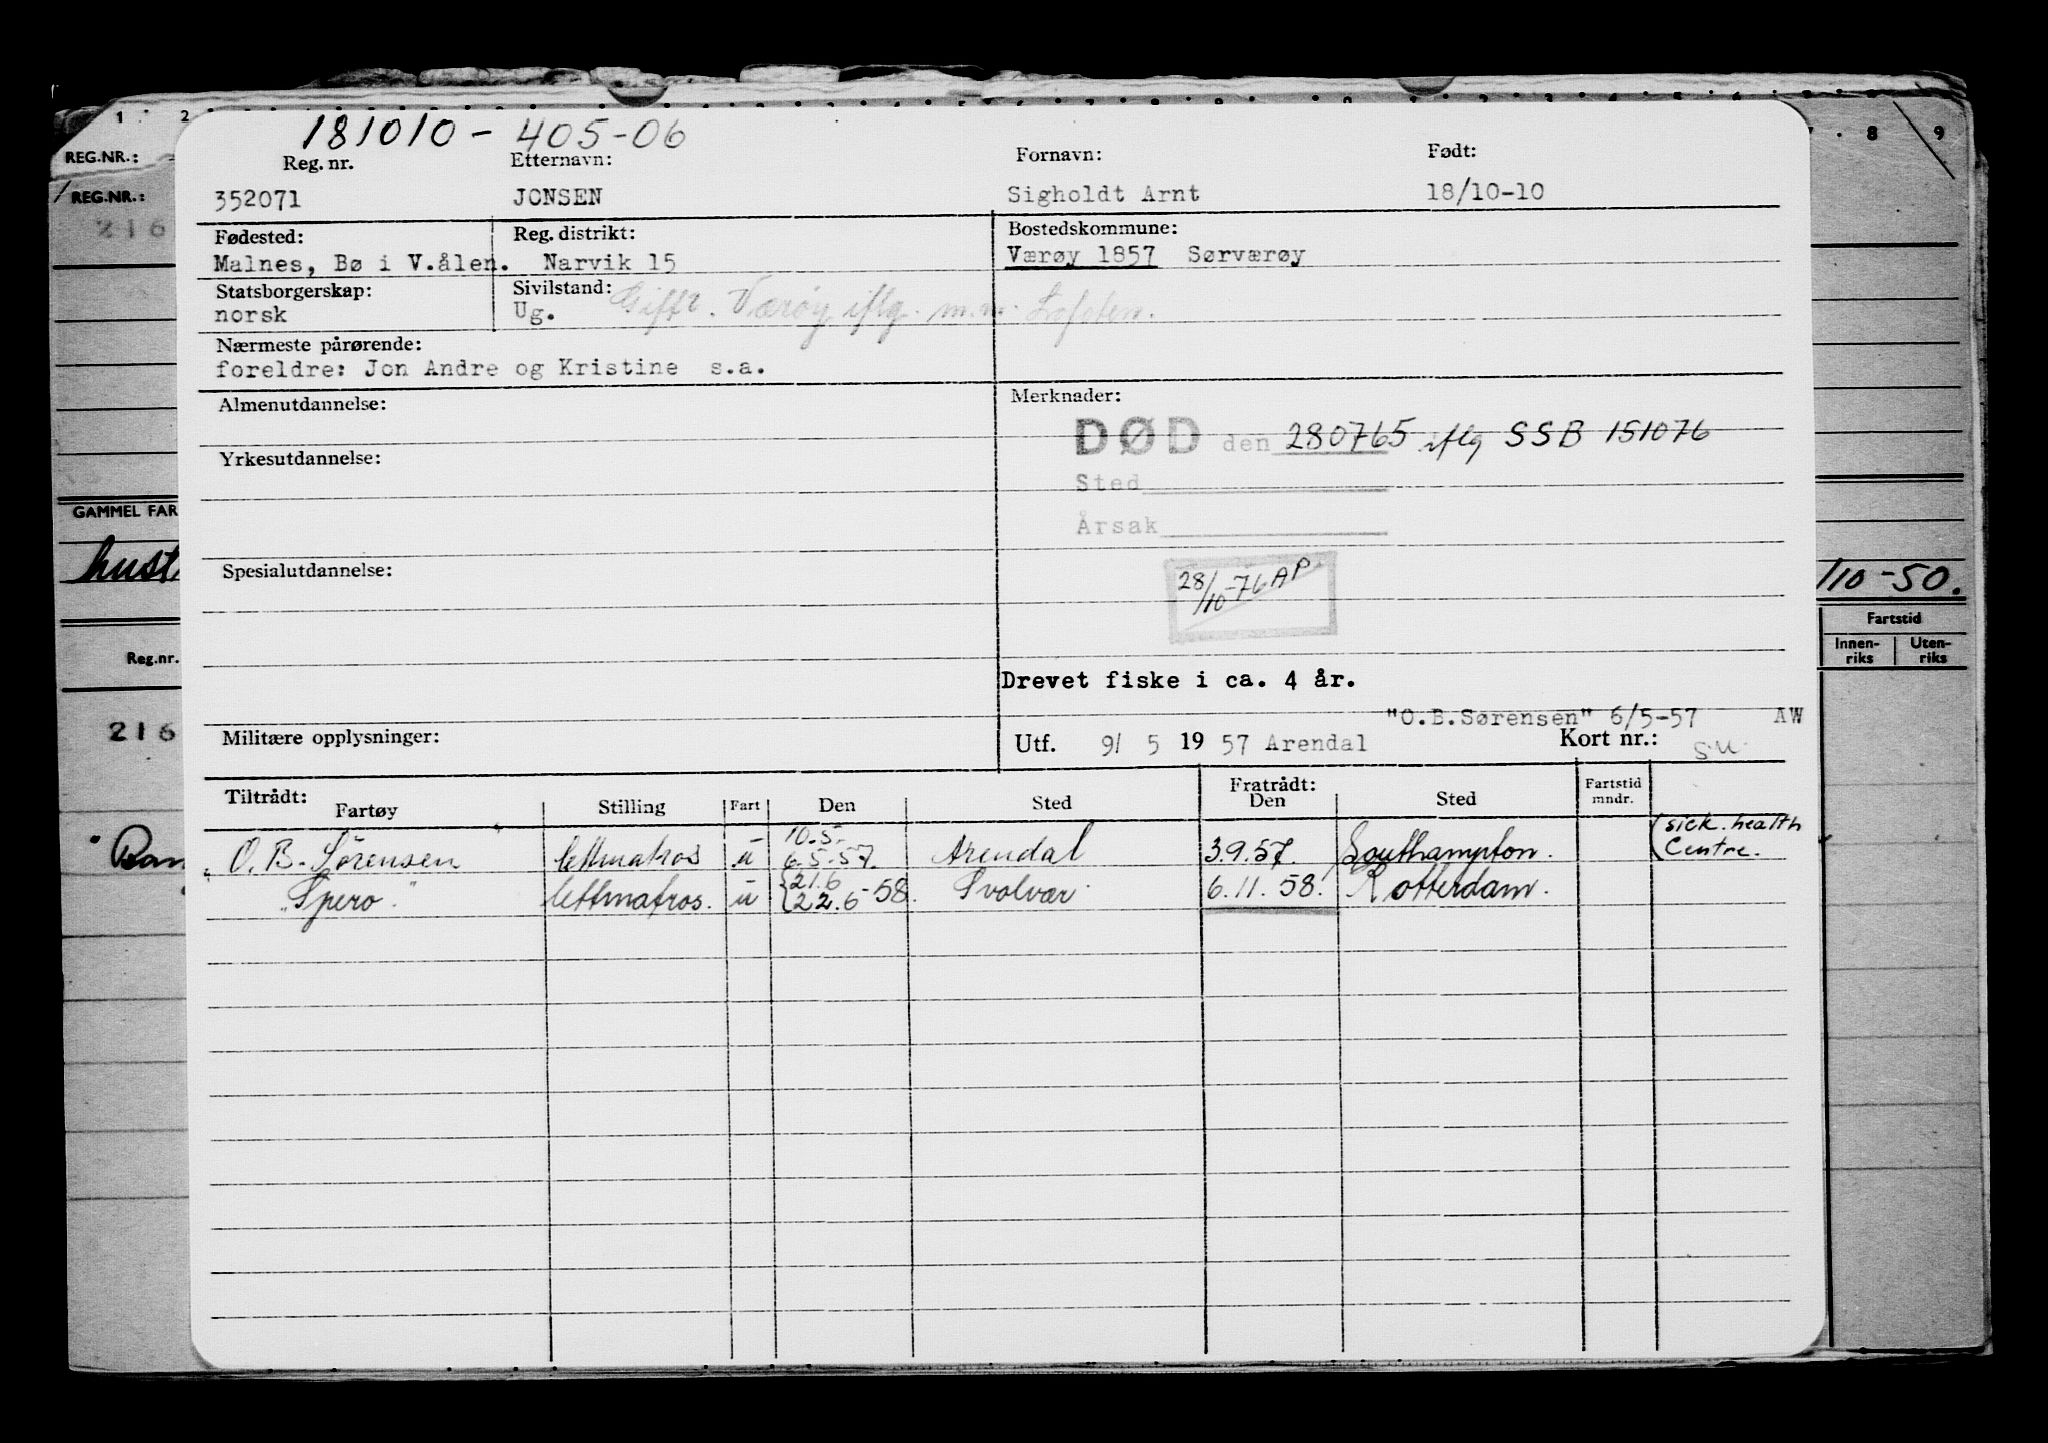 1 2 8 9
REG.NR.:
REG.NR.:
216
GAMMEL FAR
hust
/10-50.
Fartstid
Innen-riks Uten-riks
Reg.nr.
216
181010 - 405-06
Reg. nr. Etternavn: Fornavn: Født:
352071 JONSEN Sigholdt Arnt 18/10-10
Fødested: Reg. distrikt: Bostedskommune:
Malnes, Bø i V.ålen. Narvik 15 Værøy 1857 Sørværøy
Statsborgerskap: Sivilstand:
norsk Ug. Gift. Værøy iflg. m.m. Lofoten.
Nærmeste pårørende:
foreldre: Jon Andre og Kristine s.a.
Almenutdannelse: Merknader:
DØD den 280765 iflg SSB 151076
Yrkesutdannelse:
Sted
Årsak
Spesialutdannelse:
28/10-76 AP
Drevet fiske i ca. 4 år.
"O.B.Sørensen" 6/5-57 AW
Militære opplysninger: Utf. 9/ 5 19 57 Arendal Kort nr.:
S.U.
Tiltrådt: Fratrådt:
Fartøy Stilling Fart Den Sted Den Sted Fartstid mndr.
10.5- (sick. health
"O. B. Sørensen lettmatros ū 6.5-57. Arendal 3.9.57. Southampton. Centre.
21.6
"Spero" lettmatros. ū 22.6-58. Svolvær 6.11.58. Rotterdam.